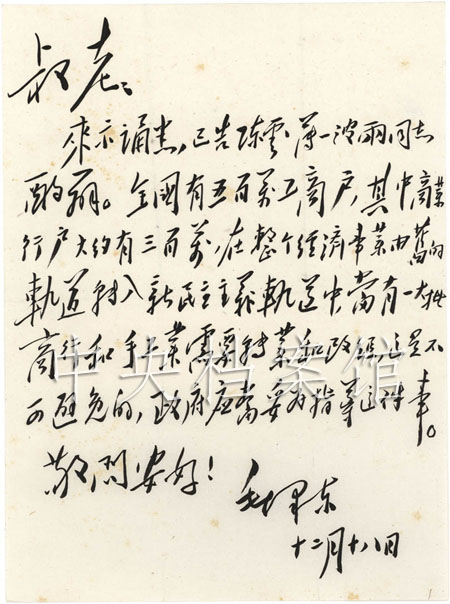 叔老：
來示誦悉，已告陈雲薄一波兩同志
酌辦。全國有五百萬工商户，其中商業
行户大約有三百萬，在整个經濟事業由舊的
軌道轉入新民主主義軌道中當有一大批
商行和手工業需要轉業和改組這是不
可避免的，政府應當妥為指導這件事。
敬問安好！
毛澤东
十二月十八日
中央档案馆
1